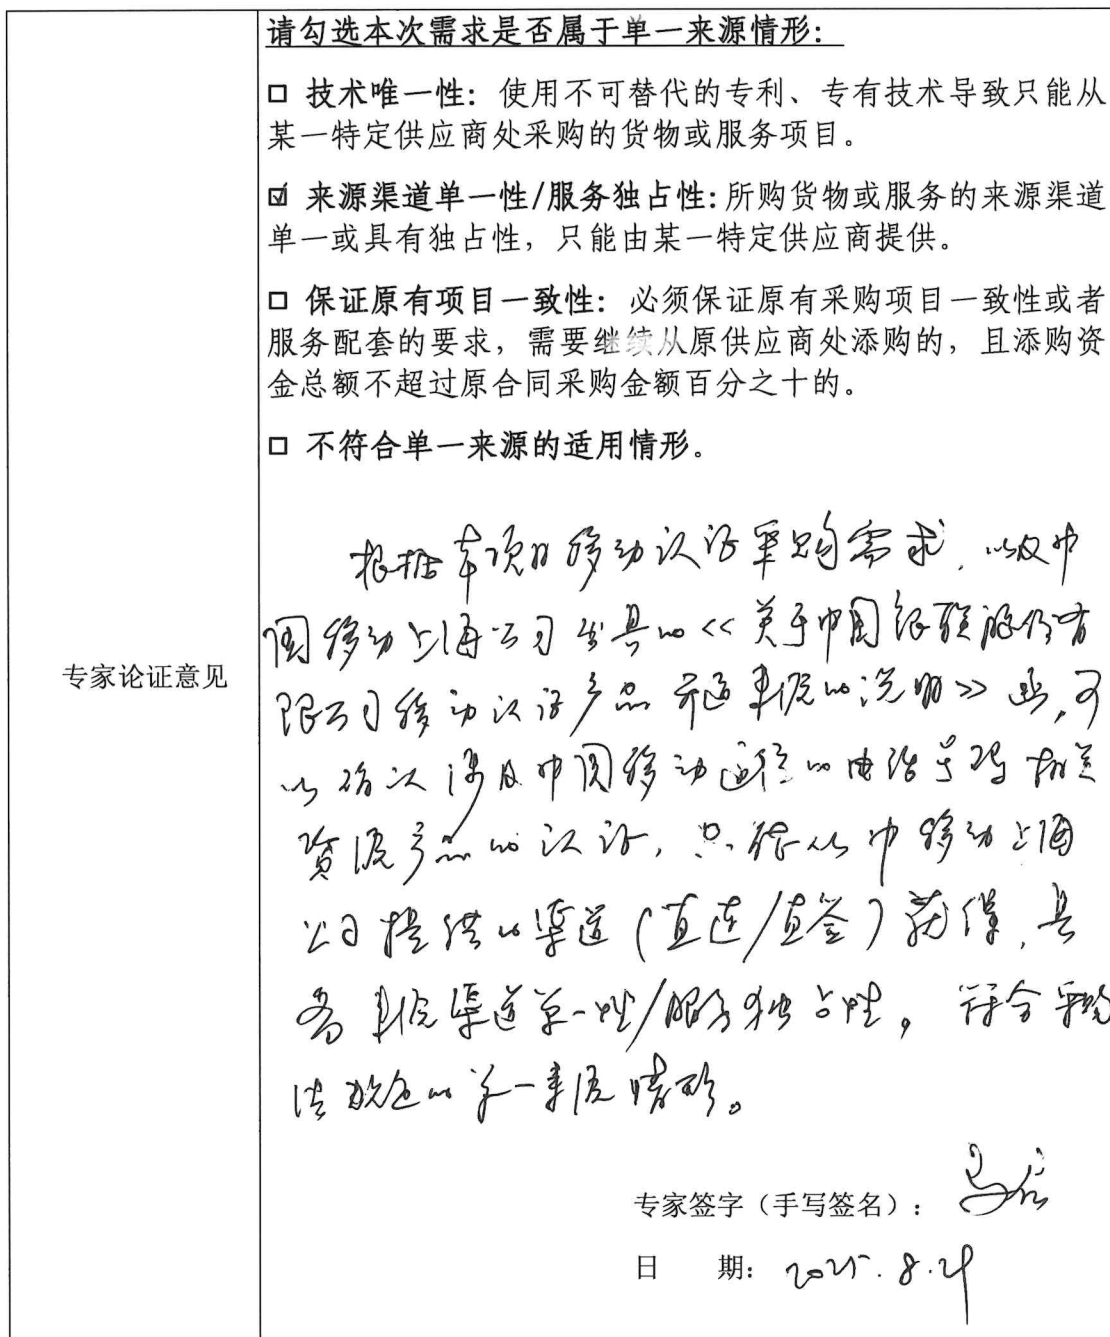 请勾选本次需求是否属于单一来源情形：
□ 技术唯一性：使用不可替代的专利、专有技术导致只能从
某一特定供应商处采购的货物或服务项目。
☑ 来源渠道单一性/服务独占性：所购货物或服务的来源渠道
单一或具有独占性，只能由某一特定供应商提供。
□ 保证原有项目一致性：必须保证原有采购项目一致性或者
服务配套的要求，需要继续从原供应商处添购的，且添购资
金总额不超过原合同采购金额百分之十的。
□ 不符合单一来源的适用情形。
专家论证意见
根据本项目移动认证采购需求，以及中
国移动上海公司出具的《关于中国银联股份有
限公司移动认证产品开通来源的说明》函，可
以确认涉及中国移动通信的电话号码相关
资源产品的认证，只能从中移动上海
公司提供的渠道（直连/直签）获得，具
备来源渠道单一性/服务独占性，符合采购
法规定的单一来源情形。
专家签字（手写签名）：
日 期：2025.8.29